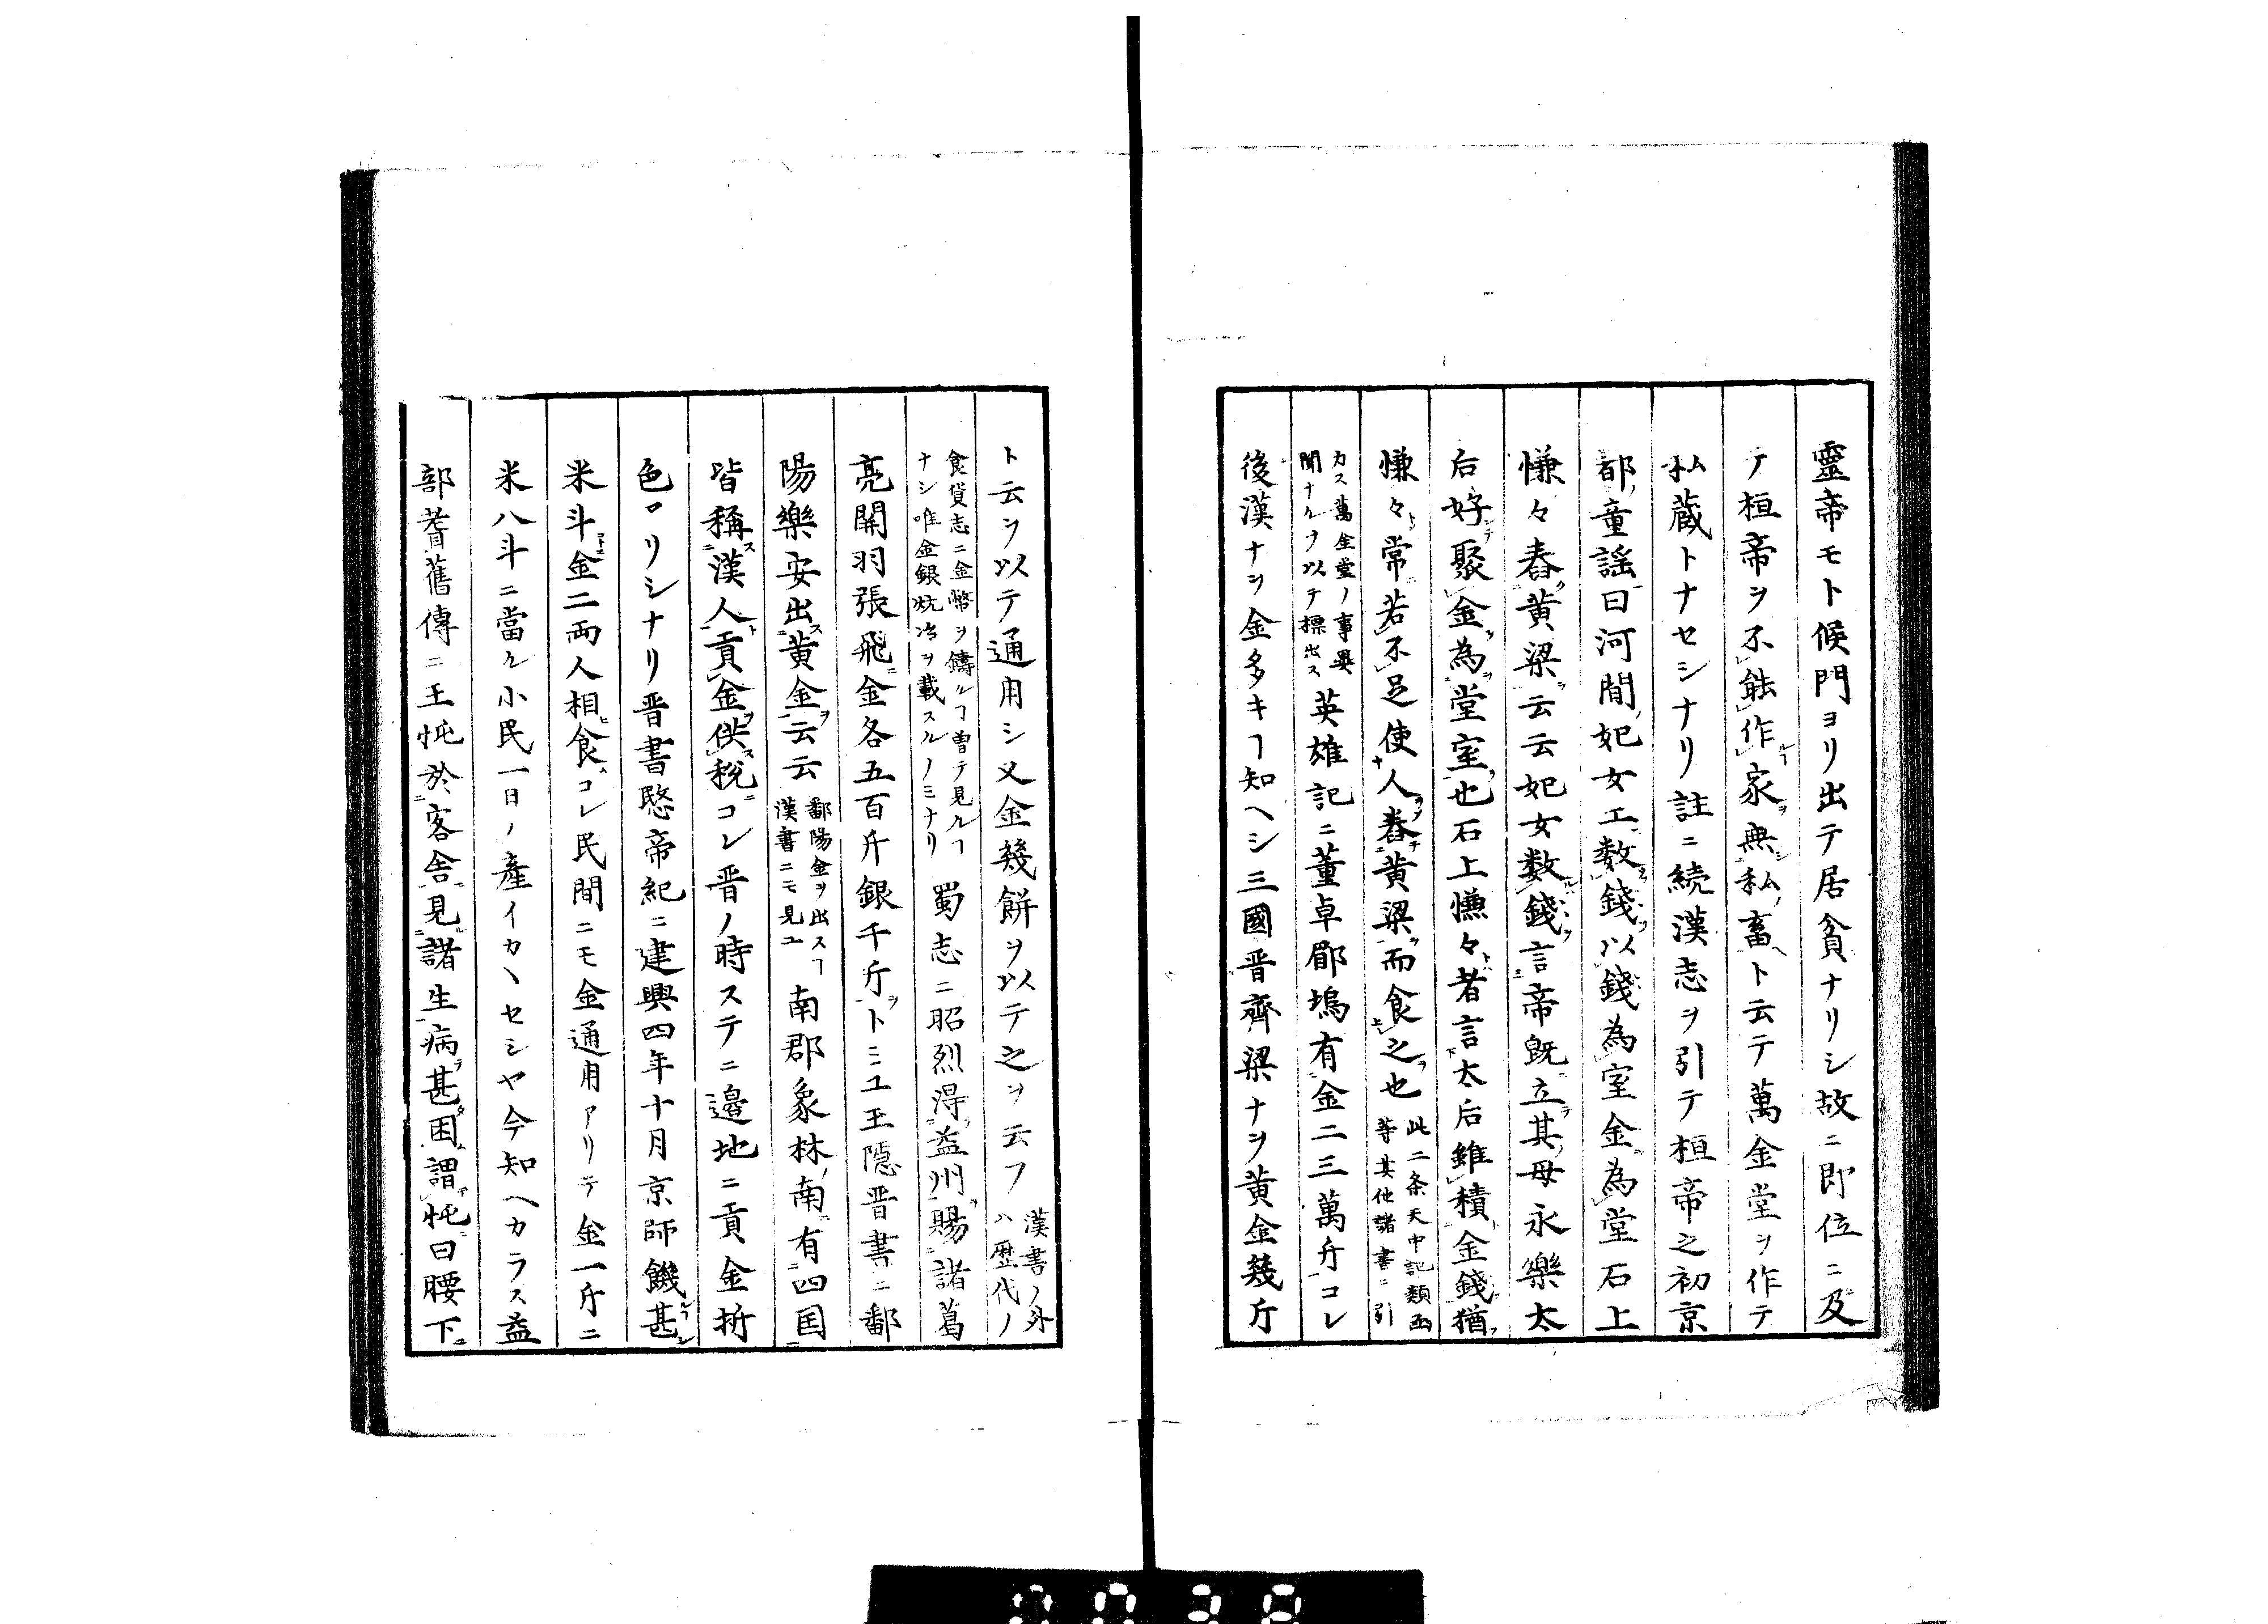 靈帝モト候門ヨリ出テ居貧ナリシ故ニ即位ニ及
テ桓帝ヲ不能作家無私畜ト云テ萬金堂ヲ作テ
私蔵トナセシナリ註ニ続漢志ヲ引テ桓帝之初京
都童謡曰河間妃女工数錢以錢為室金為堂石上
慊々舂黄粱云云妃女数錢言帝既立其母永樂太
后好聚金為堂室也石上慊々者言太后雖積金錢猶
慊々常若不足使人舂黄粱而食之也此二条天中記類函
等其他諸書ニ引
カス萬金堂ノ事畢
聞ナルヲ以テ標出ス英雄記ニ董卓郿塢有金二三萬斤コレ
後漢ナヲ金多キヿ知ヘシ三國晋齊梁ナヲ黄金幾斤
ト云ヲ以テ通用シ又金幾餅ヲ以テ之ヲ云フ漢書ノ外
ハ歴代ノ
食貨志ニ金幣ヲ鑄ルヿ曽テ見ルヿ
ナシ唯金銀坑冶ヲ載スルノミナリ蜀志ニ昭烈得益州賜諸葛
亮関羽張飛金各五百斤銀千斤トミユ王隠晋書ニ鄱
陽樂安出黄金云云鄱陽金ヲ出スヿ
漢書ニモ見ユ南郡象林南有四国
皆稱漢人貢金供税コレ晋ノ時ステニ邉地ニ貢金折
色ロリシナリ晋書愍帝紀ニ建興四年十月京師饑甚
米斗金二両人相食コレ民間ニモ金通用アリテ金一斤ニ
米八斗ニ當ル小民一日ノ産イカヽセシヤ今知ヘカラス益
部耆舊傳ニ王忳於客舎見諸生病甚困謂忳曰腰下